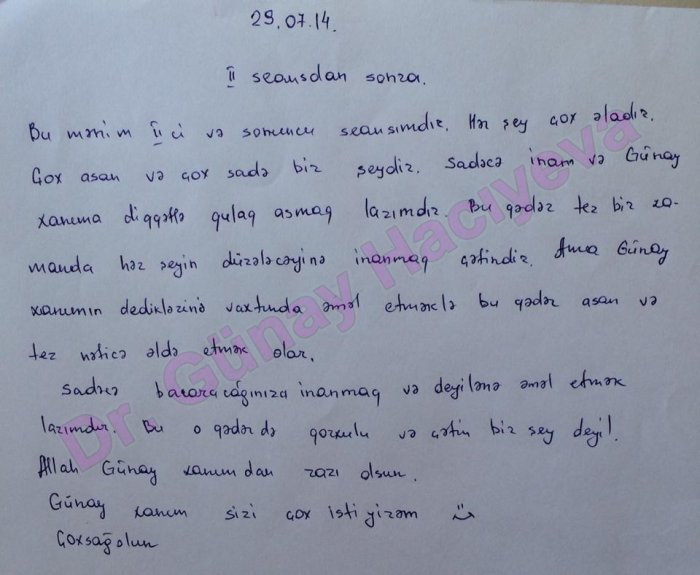 29.07.14.
II seansdan sonra.
Bu mənim II ci və sonuncu seansımdır. Hər şey çox əladır.
Çox asan və çox sadə bir şeydir. Sadəcə inam və Günay
xanıma diqqətlə qulaq asmaq lazımdır. Bu qədər tez bir za-
manda hər şeyin düzələcəyinə inanmaq çətindir. Ama Günay
xanımın dediklərinə vaxtında əməl etməklə bu qədər asan və
tez nəticə əldə etmək olar.
Sadəcə bacaracağınıza inanmaq və deyilənə əməl etmək
lazımdır. Bu o qədər də qorxulu və çətin bir şey deyil!
Allah Günay xanımdan razı olsun.
Günay xanım sizi çox istiyirəm
Çoxsağolun
Dr. Günay Hacıyeva